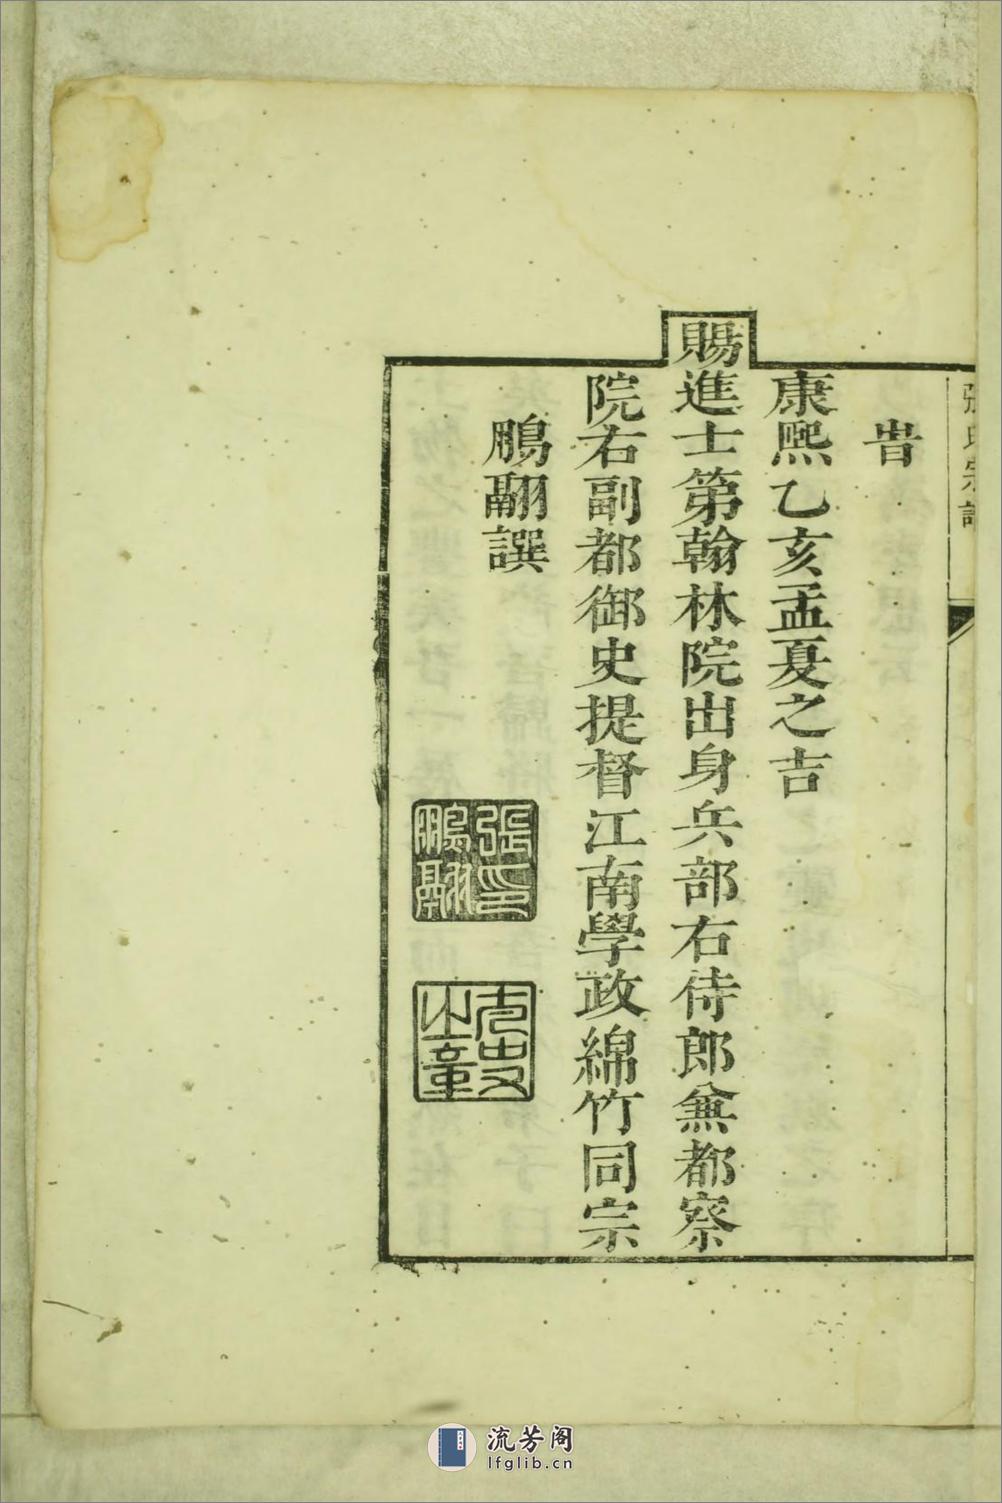 張氏宗譜
旹
康熙乙亥孟夏之吉
賜進士第翰林院出身兵部右侍郎兼都察
院右副都御史提督江南學政綿竹同宗
鵬翮譔
張鵬翮印
之章
流芳阁
lfglib.cn